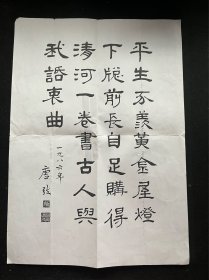 平生不羡黄金屋燈
下窗前長自足購得
清河一卷書古人與
我話衷曲
一九八六年
唐弢